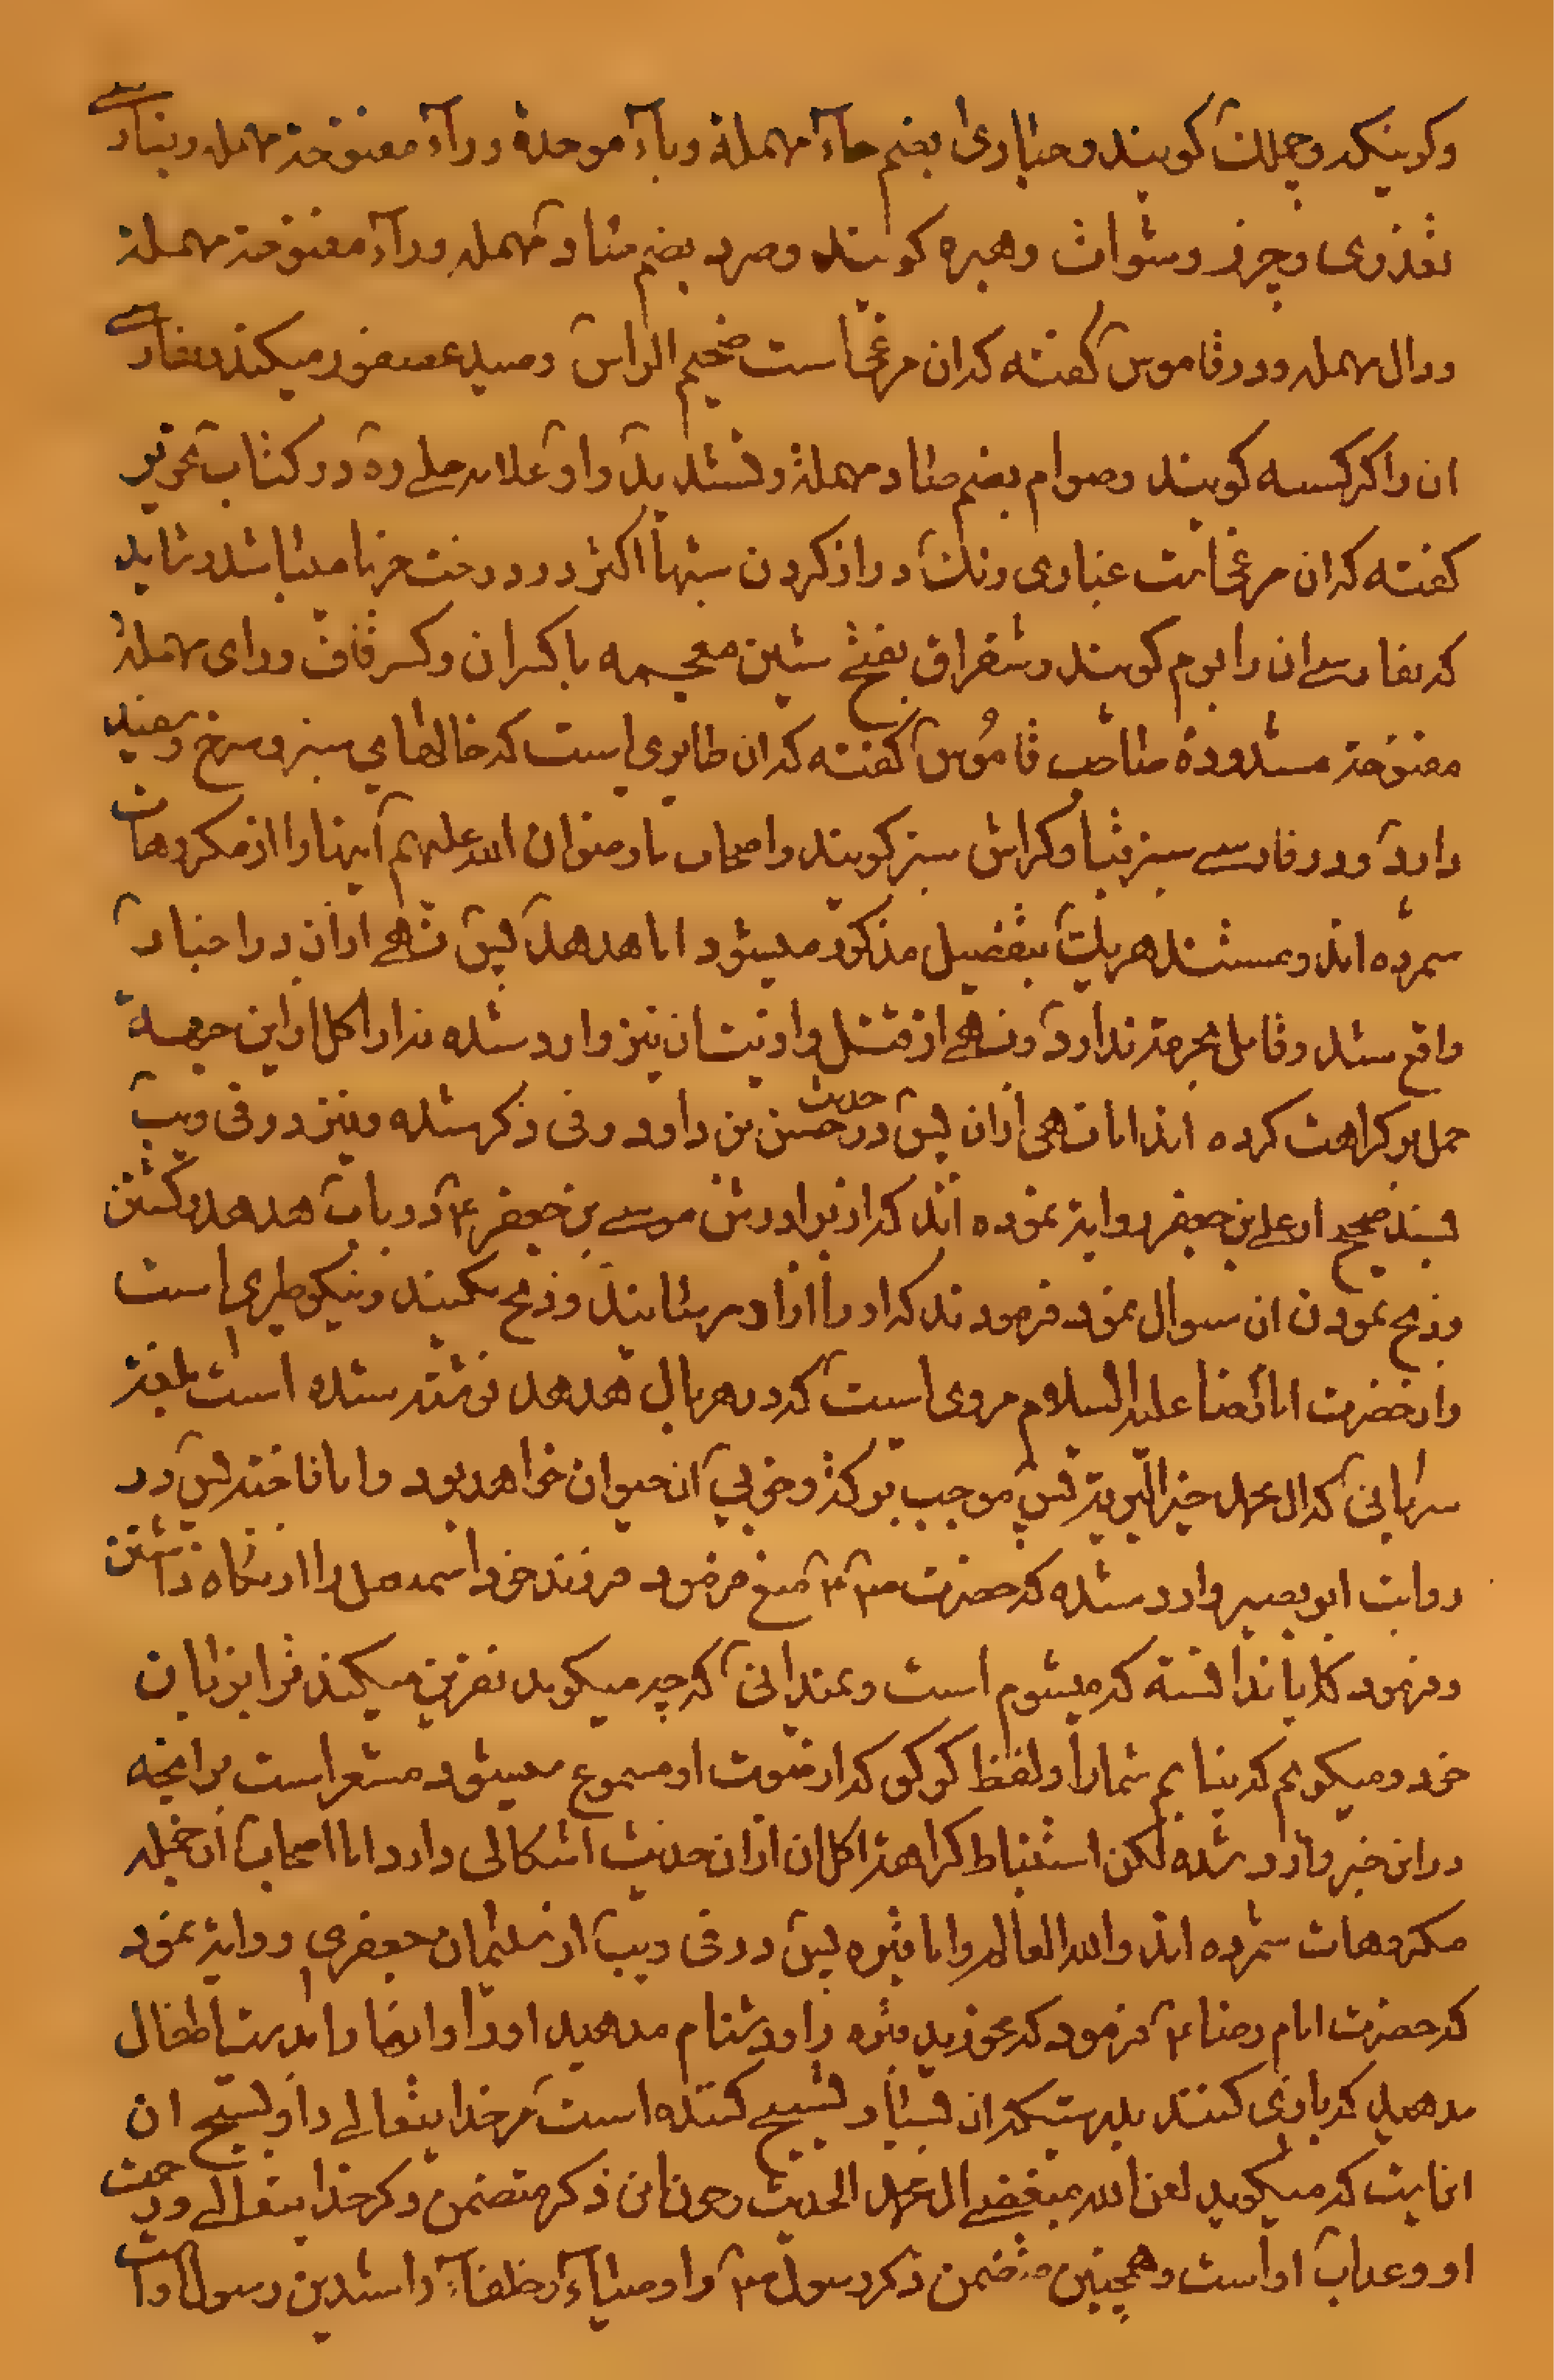 وکوینکه وچملک کویند وحباری بضم حاء مهملة وباء موحدة وراء مفتوحة مهمله وبفارسے
تغذری وچرز وشوات وهبره کویند وصرد بضم صاد مهمله وراء مفتوحة مهملة
ودال مهمله ودر قاموس کفته که ان مرغیاست ضخیم الراس وصید عصفور میکند بفارسے
ان را کرکسه کویند وصوام بضم صاد مهملة وتشدید واو علامه حلے ره در کتاب تحریر
کفته که ان مرغیاست غباری رنک دراز کردن شبها اکثر در درخت خرما میباشد وشاید
که بفارسے ان را بوم کویند وشقراق بفتح شین معجمه یا کسر ان وکسر قاف ورای مهملة
مفتوحة مشدوده صاحب قاموس کفته که ان طایری است که خالهای سبز وسرخ وسفید
دارد ودر فارسے سبزقبا وکراش سبز کویند واصحاب ما رضوان الله علیهم اینها را از مکروهات
شمرده اند ومستند هریک بتفصیل مذکور میشود اما هدهد پس نهے از ان در اخبار
واقع شد وقایل بحرمة ندارد ونهے از قتل واو نیز وارد شده نه از اکل از این جهة
حمل بر کراهت کرده اند اما نهی از ان پس در حدیث حسن بن داود رقی ذکر شده ونیز در قی ویب
بسند صحیح از علے بن جعفر روایة نموده اند که از برادرش موسے بن جعفر ع در باب هدهد وکشتن
وذبح نمودن ان سوال نمود فرمودند که او را ازار مرسانید وذبح مکنید ونیکو طیری است
واز حضرت امام رضا علیه السلام مروی است که در هر بال هدهد نوشته شده است بلغة
سریانی که ال محمد خیر البریة پس موجب تبرک وخوبی ان حیوان خواهد بود واما فاخته پس در
روایت ابو بصیر وارد شده که حضرت ص ع منع فرمود فرزند خود اسمعیل را از نکاه داشتن
وفرمود که میشوم است ونمیدانی که چه میکوید نفرین میکند
خود ومیکویم که نیابم شما را ولفظ کوکو که از صوت او مسموع میشود مشعر است بر انچه
در این خبر وارد شده لکن استنباط کراهة اکل ان از ان حدیث اشکالی دارد اما اصحاب از جمله
مکروهات شمرده اند والله العالم واما قبره پس در قی ویب از سلیمان جعفری روایة نمود
که حضرت امام رضا ع فرمود که مخورید قبره را ودشنام مدهید او را واو را بدست اطفال
مدهید که بازی کنند بدرستیکه ان بسیار تسبیح کننده است مر خدایتعالے را وتسبیح ان
انیست که میکوید لعن الله مبغضے ال محمد الحدیث وچون این ذکر متضمن ذکر خدایتعالے ورحمت
او وعذاب او است وهمچنین متضمن ذکر رسول ص واوصیاء وخلفاء راشدین رسول او است